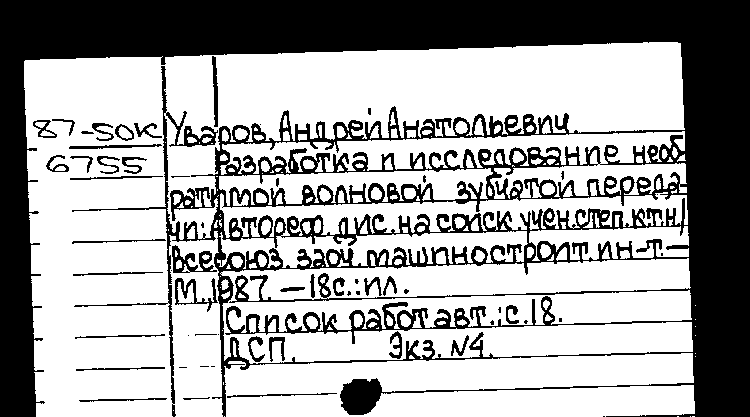 87-50К Уваров, Андрей Анатольевич.
6755 Разработка и исследование необ-
ратимой волновой зубчатой переда-
чи: Автореф. дис. на соиск. учен. степ. к.т.н/
Всесоюз. заоч. машиностроит. ин-т. —
М., 1987. — 18с.: ил.
Список работ авт.: с. 18.
ДСП. Экз. N4.